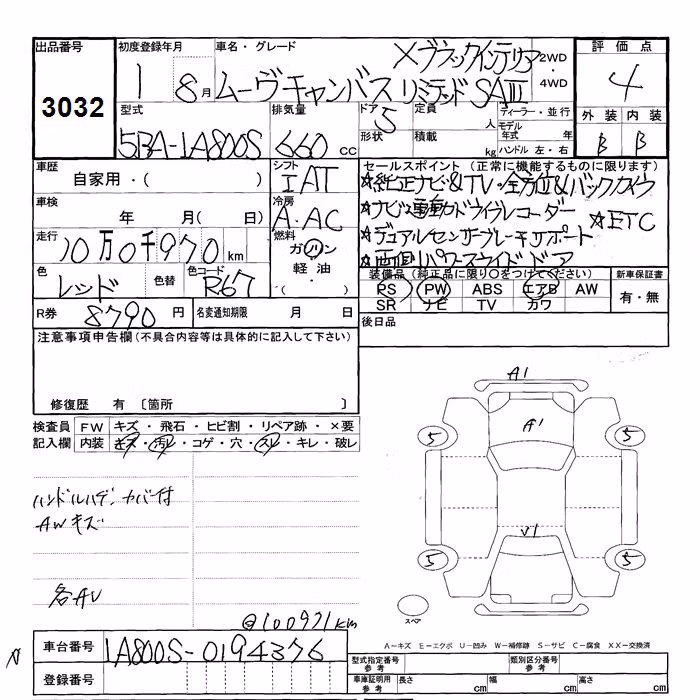 出品番号
3032
初度登録年月
1 8月
車名・グレード
×ブラックインテリア
ムーヴキャンバス リミテッド SAⅢ
2WD
・
4WD
評価点
4
外装 内装
B B
型式
5BA-1A800S
排気量
660 cc
ドア
5
形状
定員
人
積載
kg
ディーラー・並行
モデル年式 年
ハンドル 左・右
車歴
自家用・( )
シフト
IAT
車検
年 月( 日)
冷房
A・AC
走行
10万0千970km
燃料
ガソリン
軽油
・
( )
色
レッド
色替
色コード
R67
R券
8790円
名変通知期限 月 日
セールスポイント(正常に機能するものに限ります)
☆純正ナビ&TV・全方位&バックカメラ
☆ナビ連動ドライブレコーダー
☆ETC
☆デュアルセンサーブレーキサポート
☆両側パワースライドドア
装備品(純正品に限り○をつけてください)
PS PW ABS エアB AW
SR ナビ TV カワ
新車保証書
有・無
後日品
注意事項申告欄(不具合内容等は具体的に記入して下さい)
修復歴 有 〔箇所 〕
検査員記入欄
FW キズ・飛石・ヒビ割・リペア跡・×要
内装 キズ・汚レ・コゲ・穴・スレ・キレ・破レ
ハンドルハゲ、カバー付
AWキズ
各AU
@100971km
A1
A1
5 5
V1
5 5
スペア
A－キズ E－エクボ U－凹み W－補修跡 S－サビ C－腐食 XX－交換済
車台番号
1A800S-0194376
登録番号
型式指定番号
参考
類別区分番号
参考
車庫証明用
参考
長さ cm
幅 cm
高さ cm